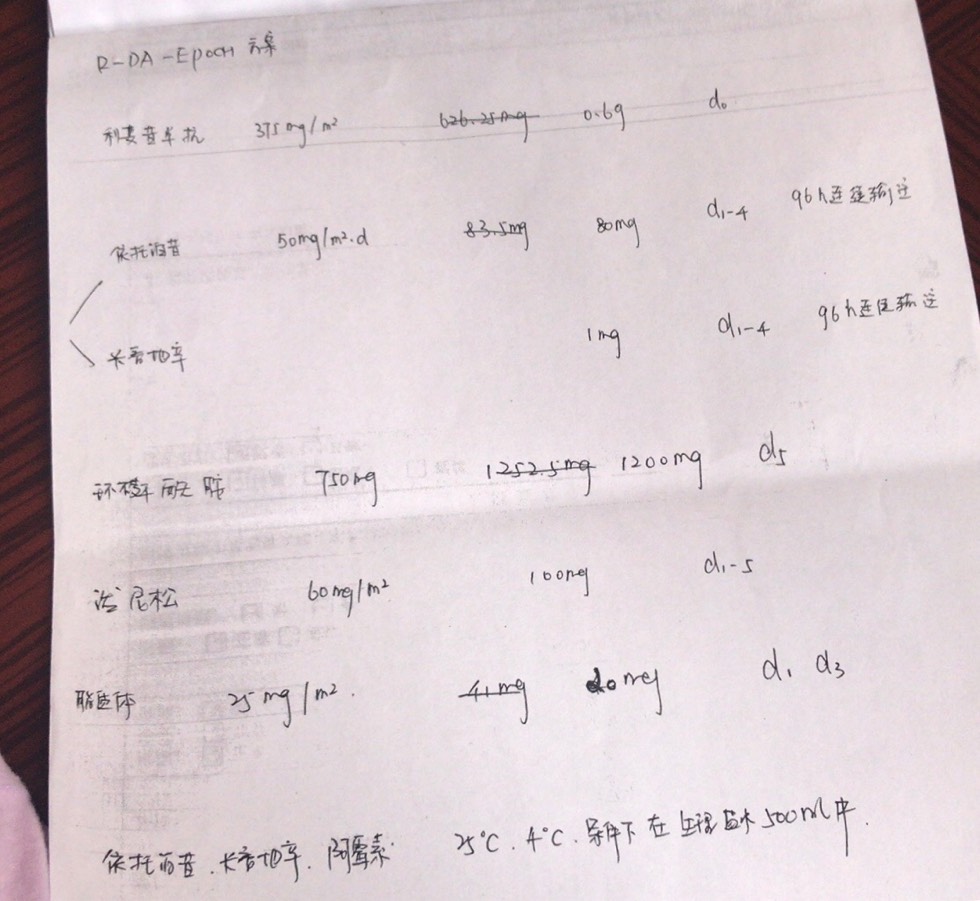 R-DA-Epoch 方案
利妥昔单抗 375mg/m² 626.25mg 0.6g d₀
依托泊苷 50mg/m².d 83.5mg 80mg d₁-₄ 96h连续输注
长春地辛 1mg d₁-₄ 96h连续输注
环磷酰胺 750mg 1252.5mg 1200mg d₅
泼尼松 60mg/m² 100mg d₁-₅
脂质体 25mg/m². 41mg mg d₁ d₃
依托泊苷.长春地辛.阿霉素 25℃.4℃.条件下在生理盐水500ml中.